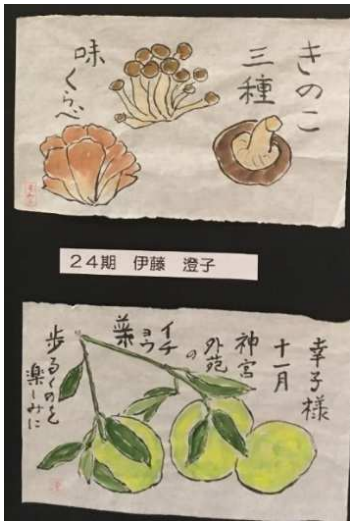 きのこ
三種
味くらべ
24期 伊藤 澄子
幸子様
十一月
神宮
外苑
の
イチョウ
葉
歩るくのを
楽しみに